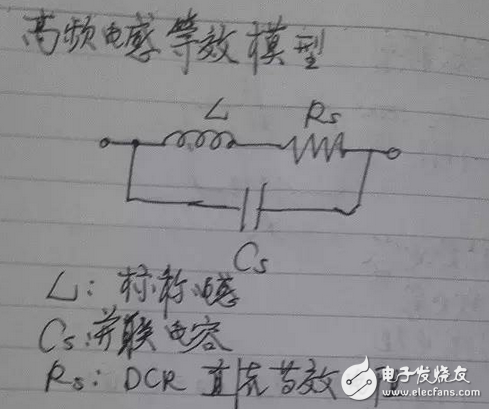 高频电感等效模型
L
Rs
Cs
L: 标称电感
Cs: 并联电容
Rs: DCR 直流等效
电子发烧友
www.elecfans.com